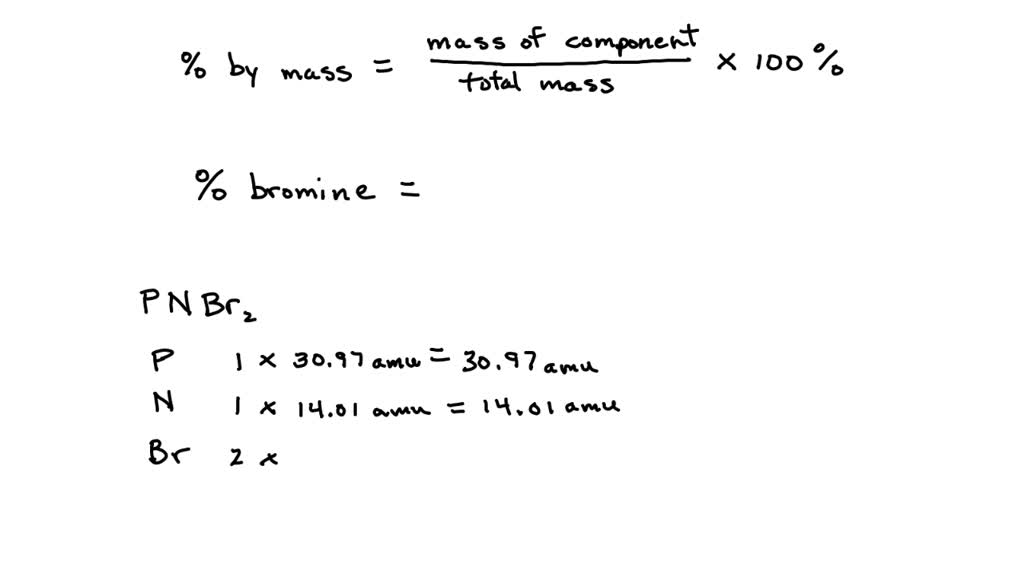 % by mass = mass of component / total mass × 100%
% bromine =
PNBr₂
P 1 × 30.97 amu = 30.97 amu
N 1 × 14.01 amu = 14.01 amu
Br 2 ×